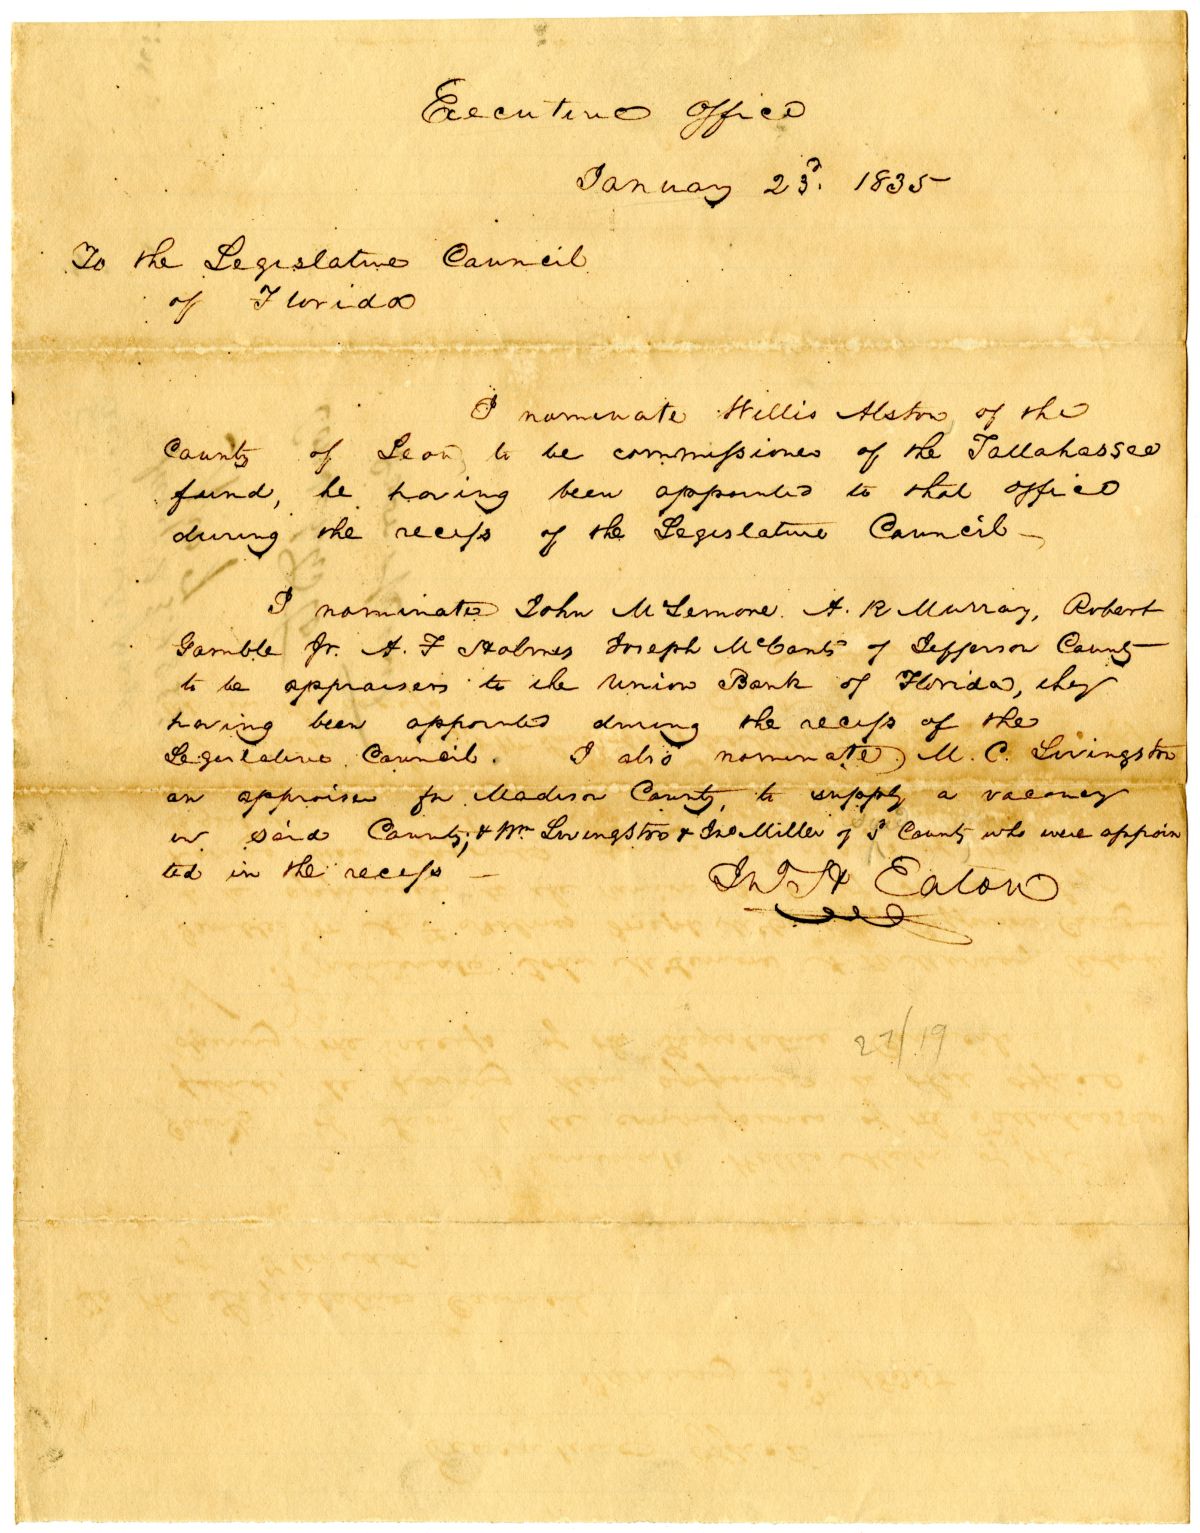 Executive Office
January 23d. 1835
To the Legislative Council
of Florida
I nominate Willis Alston, of the
County of Leon, to be commissioner of the Tallahassee
fund, he having been appointed to that office
during the recess of the Legislative Council —
I nominate John McLemore. A. R Murray, Robert
Gamble Jr. A. F Holmes Joseph McCants of Jefferson County
to be appraisers to the Union Bank of Florida, they
having been appointed during the recess of the
Legislative Council. I also nominate M. C. Livingston
an appraiser for Madison County, to supply a vacancy
in said County; & Wm Livingston & Jno Miller of sd County who were appoin
ted in the recess —
Jno. H Eaton
27/19